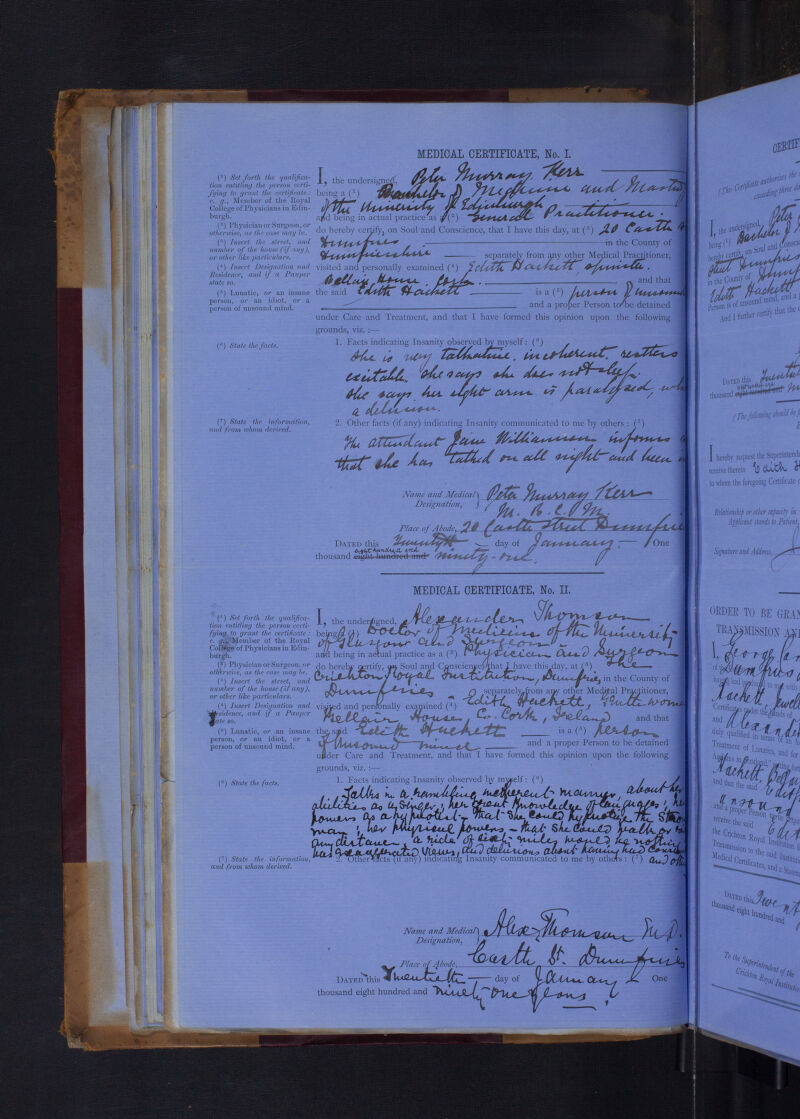 MEDICAL CERTIFICATE, No. I.
(¹) Set forth the qualifica-
tion entitling the person certi-
fying to grant the certificate:
e. g., Member of the Royal
College of Physicians in Edin-
burgh.
(²) Physician or Surgeon, or
otherwise, as the case may be.
(³) Insert the street, and
number of the house (if any),
or other like particulars.
(⁴) Insert Designation and
Residence, and if a Pauper
state so.
(⁵) Lunatic, or an insane
person, or an idiot, or a
person of unsound mind.
(⁶) State the facts.
(⁷) State the information,
and from whom derived.
I, the undersigned, Peter Murray Kerr
being a (¹) Bachelor of Medicine and Master
of the University of Edinburgh
and being in actual practice as a (²) General Practitioner.
do hereby certify, on Soul and Conscience, that I have this day, at (³) 20 Castle
Dumfries in the County of
Dumfriesshire separately from any other Medical Practitioner,
visited and personally examined (⁴) Edith Hackett spinster.
House Cork. and that
the said Edith Hackett is a (⁵) person of unsound
and a proper Person to be detained
under Care and Treatment, and that I have formed this opinion upon the following
grounds, viz. :—
1. Facts indicating Insanity observed by myself : (⁶)
She is very talkative, incoherent, restless
excitable. She says she does not sleep.
She says her right arm is paralysed,
a delusion.
2. Other facts (if any) indicating Insanity communicated to me by others : (⁷)
The attendant Jane Williamson informs
that she has talked on all night and been
Name and Medical Designation, Peter Murray Kerr
M. B. C. M.
Place of Abode, 20 Castle Street Dumfries
DATED this Twentyth day of January One
thousand eight hundred and eight hundred and ninety-one.
MEDICAL CERTIFICATE, No. II.
(¹) Set forth the qualifica-
tion entitling the person certi-
fying to grant the certificate:
e. g., Member of the Royal
College of Physicians in Edin-
burgh.
(²) Physician or Surgeon, or
otherwise, as the case may be.
(³) Insert the street, and
number of the house (if any),
or other like particulars.
(⁴) Insert Designation and
Residence, and if a Pauper
state so.
(⁵) Lunatic, or an insane
person, or an idiot, or a
person of unsound mind.
(⁶) State the facts.
(⁷) State the information,
and from whom derived.
I, the undersigned, Alexander Thomson
being a (¹) Doctor of Medicine of the University
of Glasgow and Surgeon
and being in actual practice as a (²) Physician and Surgeon
do hereby certify, on Soul and Conscience, that I have this day, at (³) The
Crichton Royal Institution, Dumfries, in the County of
Dumfries separately from any other Medical Practitioner,
visited and personally examined (⁴) Edith Hackett, Gentlewoman
House, Co. Cork, Ireland and that
the said Edith Hackett is a (⁵) person
of Unsound mind and a proper Person to be detained
under Care and Treatment, and that I have formed this opinion upon the following
grounds, viz. :—
1. Facts indicating Insanity observed by myself : (⁶)
Talks in a rambling incoherent manner, about her
abilities as a singer; her great knowledge of languages; her
powers as a hypnotist - that she could hypnotise the
man; her physical powers - that she could walk or
any distance, a ride of miles would be nothing
has exaggerated views, and delusions about having had
2. Other facts (if any) indicating Insanity communicated to me by others : (⁷) and
Name and Medical Designation, Alex. Thomson M.D.
Place of Abode, Castle St. Dumfries
DATED this Twentieth day of January One
thousand eight hundred and ninety one years.
CERTIF
I, the undersigned, Peter
being (¹) Bachelor
in the County of
Edith Hackett
And I further certify that the
DATED this Twentieth
thousand
I hereby request the Superintend
receive therein Edith
to whom the foregoing Certificate
Relationship or other capacity in
Applicant stands to Patient,
Signature and Address,
ORDER TO BE GRAN
TRANSMISSION AN
I, George
of Dumfries
Hackett
and Alexander
duly qualified in terms of
Treatment of Lunatics, and
Hackett,
and that the said Edith
unsound
receive the said Edith
the Crichton Royal Institution
Transmission to the said Institution
Medical Certificates, and a Statement
DATED this Twent
thousand eight hundred and
To the Superintendent of the
Crichton Royal Institution